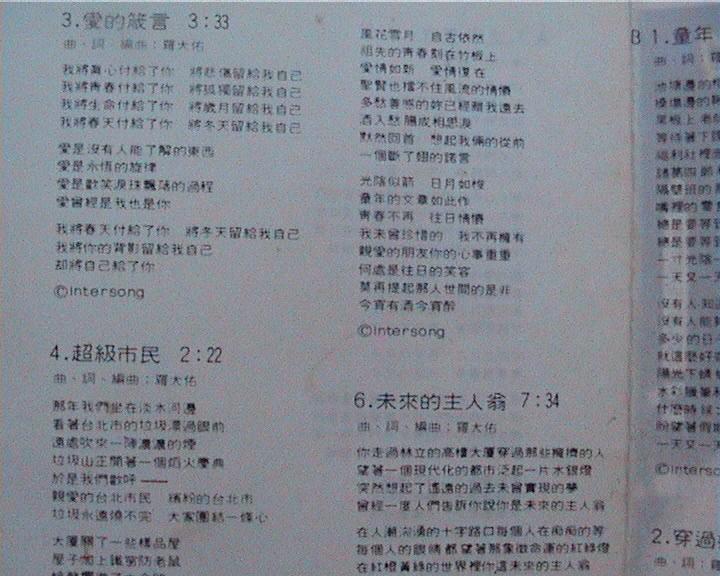 3.愛的箴言 3:33
曲、詞、編曲:羅大佑
我將真心付給了你 將悲傷留給我自己
我將青春付給了你 將孤獨留給我自己
我將生命付給了你 將歲月留給我自己
我將春天付給了你 將冬天留給我自己
愛是沒有人能了解的東西
愛是永恆的旋律
愛是歡笑淚珠飄落的過程
愛曾經是我也是你
我將春天付給了你 將冬天留給我自己
我將你的背影留給我自己
却將自己給了你
©intersong
4.超級市民 2:22
曲、詞、編曲:羅大佑
那年我們坐在淡水河邊
看著台北市的垃圾漂過眼前
遠處吹來一陣濃濃的煙
垃圾山正開著一個焰火慶典
於是我們歡呼——
親愛的台北市民 繽紛的台北市
垃圾永遠燒不完 大家團結一條心
大廈關了一些樣品屋
屋子加上鐵窗防老鼠
風花雪月 自古依然
祖先的青春刻在竹板上
愛情如新 愛情復在
聖賢也擋不住風流的情懷
多愁善感的妳已經離我遠去
酒入愁腸成相思淚
默然回首 想起我倆的從前
一個斷了翅的諾言
光陰似箭 日月如梭
童年的文章如此作
青春不再 往日情懷
我未曾珍惜的 我不再擁有
親愛的朋友你的心事重重
何處是往日的笑容
莫再提起那人世間的是非
今宵有酒今宵醉
©intersong
6.未來的主人翁 7:34
曲、詞、編曲:羅大佑
你走過林立的高樓大廈穿過那些擁擠的人
望著一個現代化的都市泛起一片水銀燈
突然想起了遙遠的過去未曾實現的夢
曾經一度人們告訴你說你是未來的主人翁
在人潮洶湧的十字路口每個人在痴痴的等
每個人的眼睛都望著那象徵命運的紅綠燈
在紅橙黃綠的世界裡你這未來的主人翁
B 1.童年
曲、詞、
池塘邊的
操場邊的
黑板上老
等待著下
福利社裡
諸葛四郎
隔壁班的
嘴裡的零
總是要等
總是要等
一寸光陰
一天又一
沒有人知
沒有人能
多少的日
就這麼好
陽光下蜻
水彩蠟筆
什麼時候
盼望著假
一天又一天
©interso
2.穿過
曲、詞、